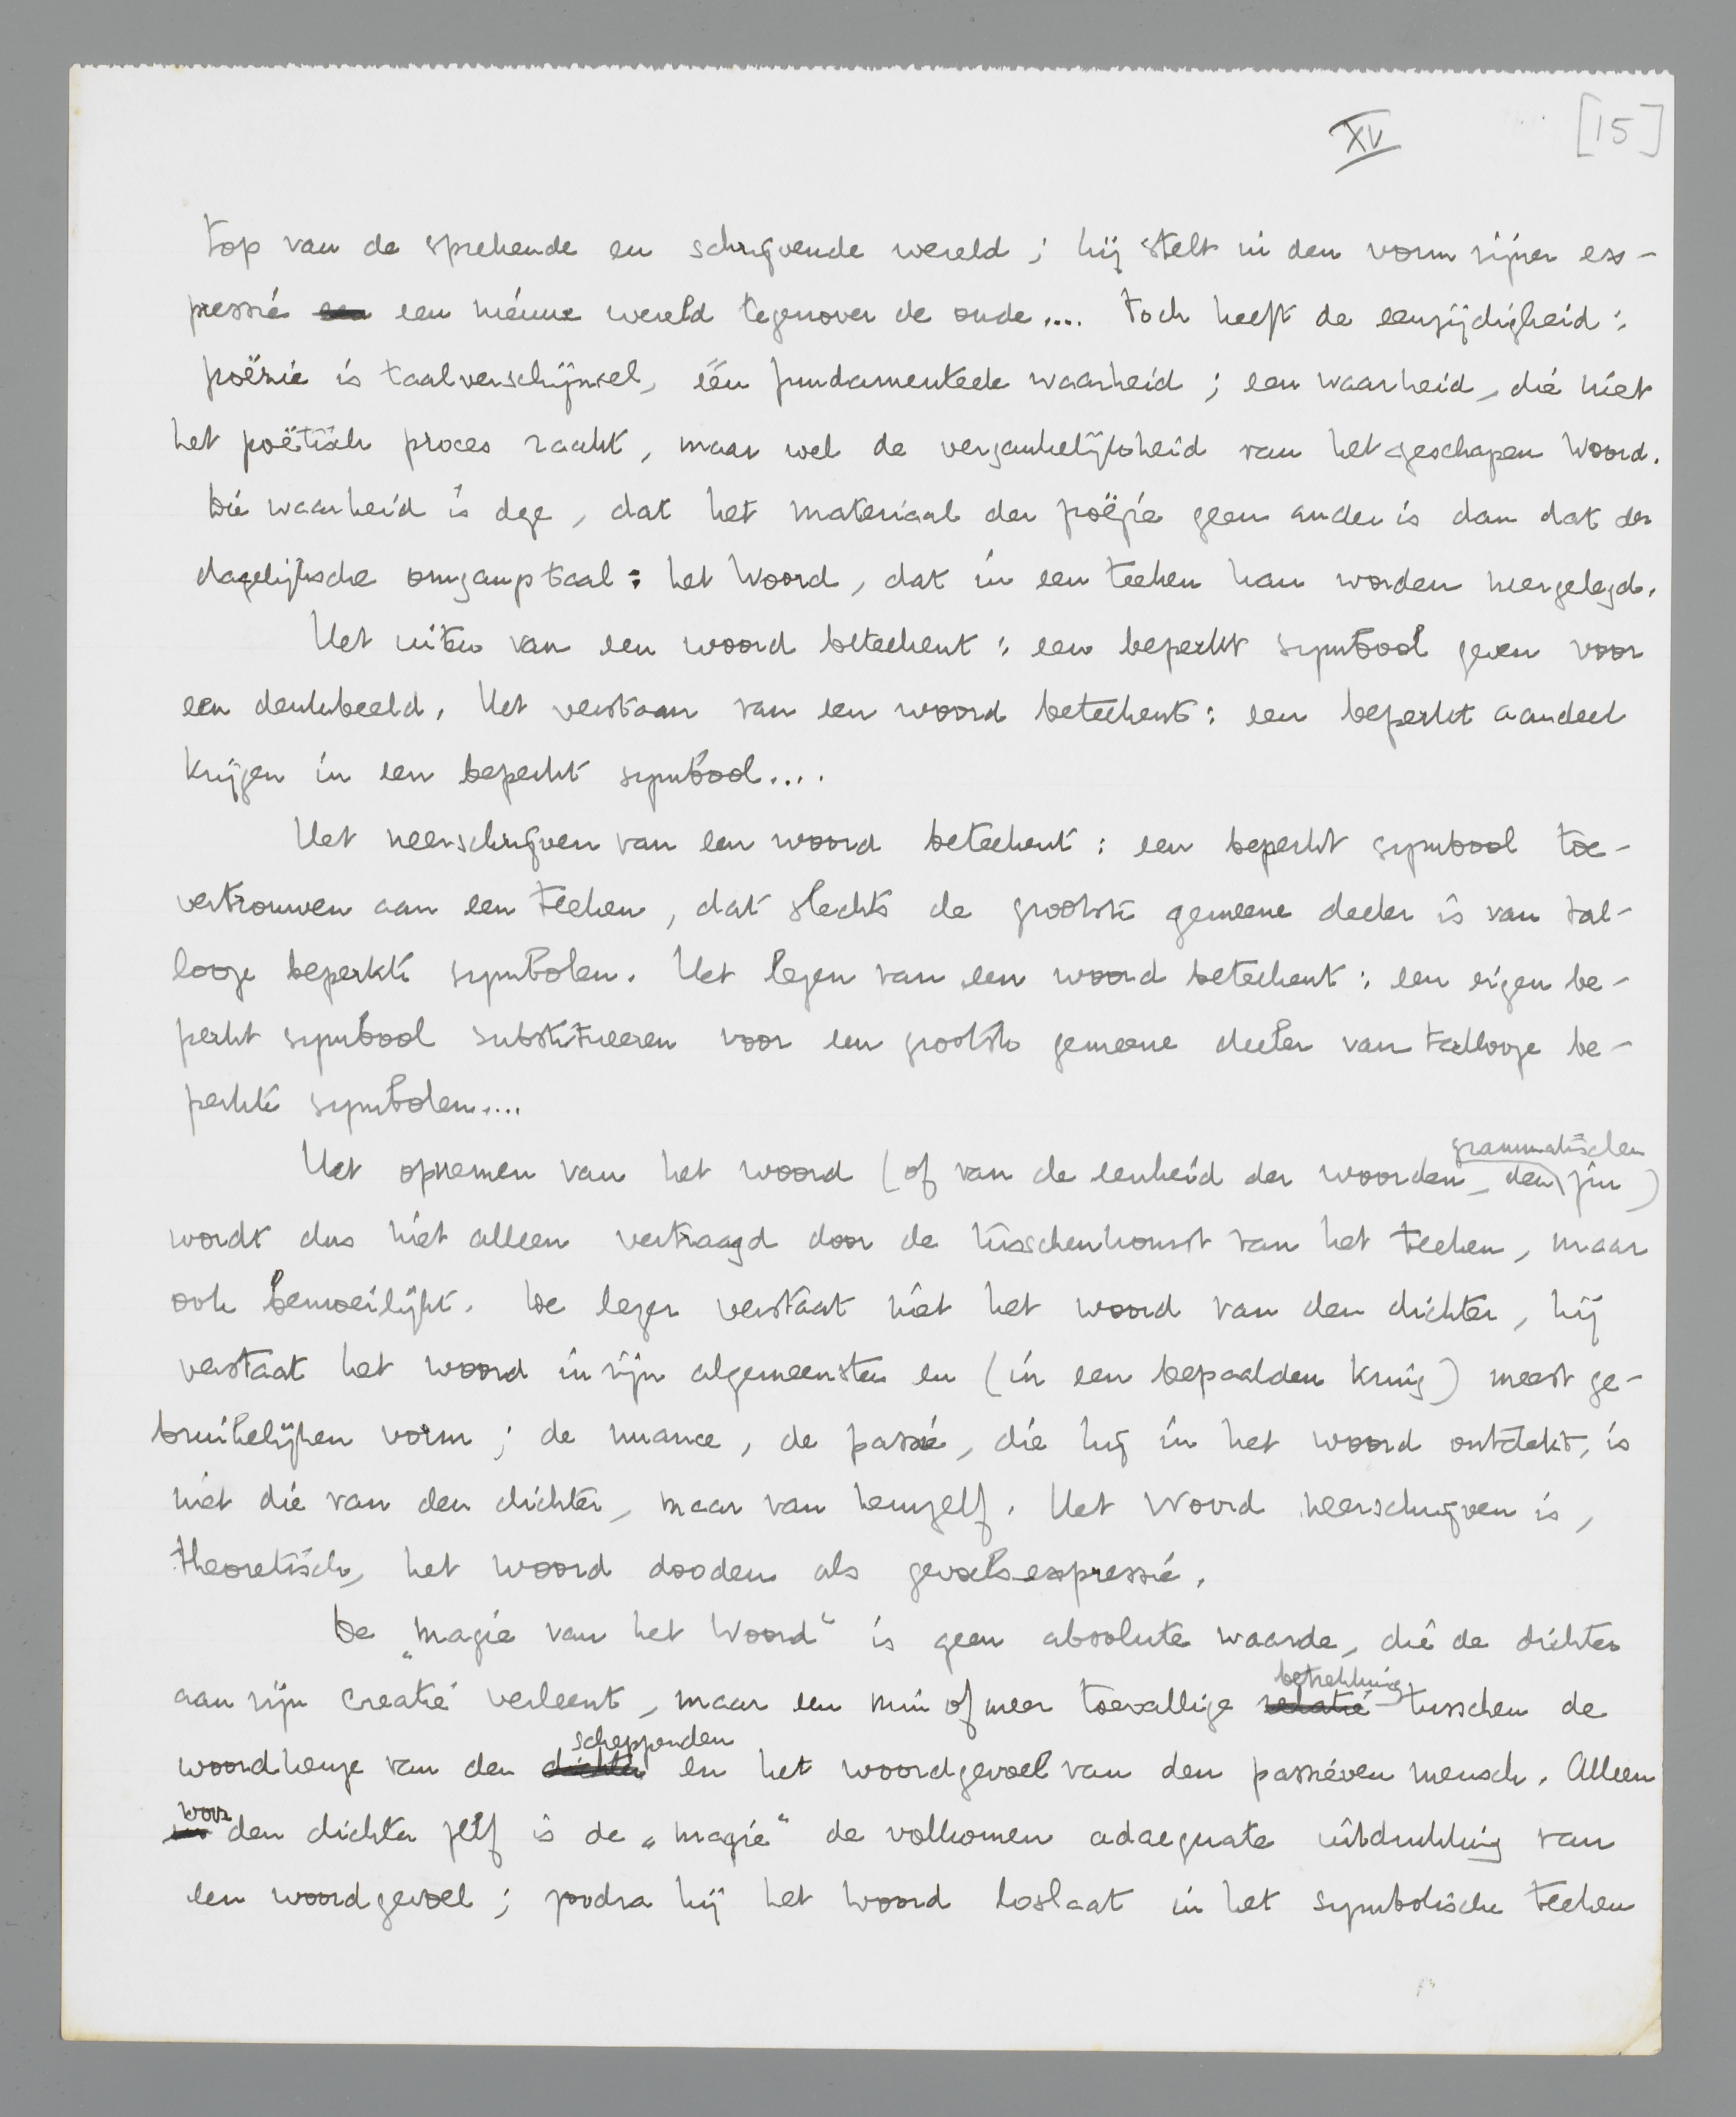 XV
[15]
top van de sprekende en schrijvende wereld; hij stelt in den vorm zijner ex-
pressie een een nieuwe wereld tegenover de oude.... Toch heeft de eenzijdigheid:
poëzie is taalverschijnsel, één fundamenteele waarheid; een waarheid, die niet
het poëtisch proces raakt, maar wel de vergankelijkheid van het geschapen Woord.
Die waarheid is deze, dat het materiaal der poëzie geen ander is dan dat der
dagelijksche omgangstaal: het Woord, dat in een teeken kan worden neergelegd.
Het uiten van een woord beteekent: een beperkt symbool geven voor
een denkbeeld. Het verstaan van een woord beteekent: een beperkt aandeel
krijgen in een beperkt symbool....
Het neerschrijven van een woord beteekent: een beperkt symbool toe-
vertrouwen aan een teeken, dat slechts de grootste gemeene deeler is van tal-
looze beperkte symbolen. Het lezen van een woord beteekent: een eigen be-
perkt symbool substitueeren voor een grootste gemeene deeler van tallooze be-
perkte symbolen....
grammatischen
Het opnemen van het woord (of van de eenheid der woorden, den zin)
wordt dus niet alleen vertraagd door de tusschenkomst van het teeken, maar
ook bemoeilijkt. De lezer verstaat niet het woord van den dichter, hij
verstaat het woord in zijn algemeensten en (in een bepaalden kring) meest ge-
bruikelijken vorm; de nuance, de passie, die hij in het woord ontdekt, is
niet die van den dichter, maar van hemzelf. Het Woord neerschrijven is,
theoretisch, het woord dooden als gevoelsexpressie.
De „magie van het Woord“ is geen absolute waarde, die de dichter
betrekking
aan zijn creatie verleent, maar een min of meer toevallige relatie tusschen de
scheppenden
woordkeuze van den dichter en het woordgevoel van den passieven mensch. Alleen
voor
in den dichter zelf is de „magie“ de volkomen adaequate uitdrukking van
een woordgevoel; zoodra hij het woord loslaat in het symbolische teeken